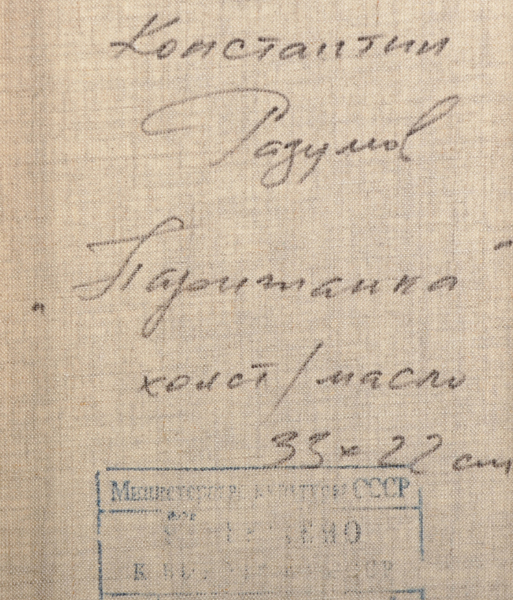 Константин
Разумов
"Парижанка"
холст/масло
33×22 см
Министерство культуры СССР